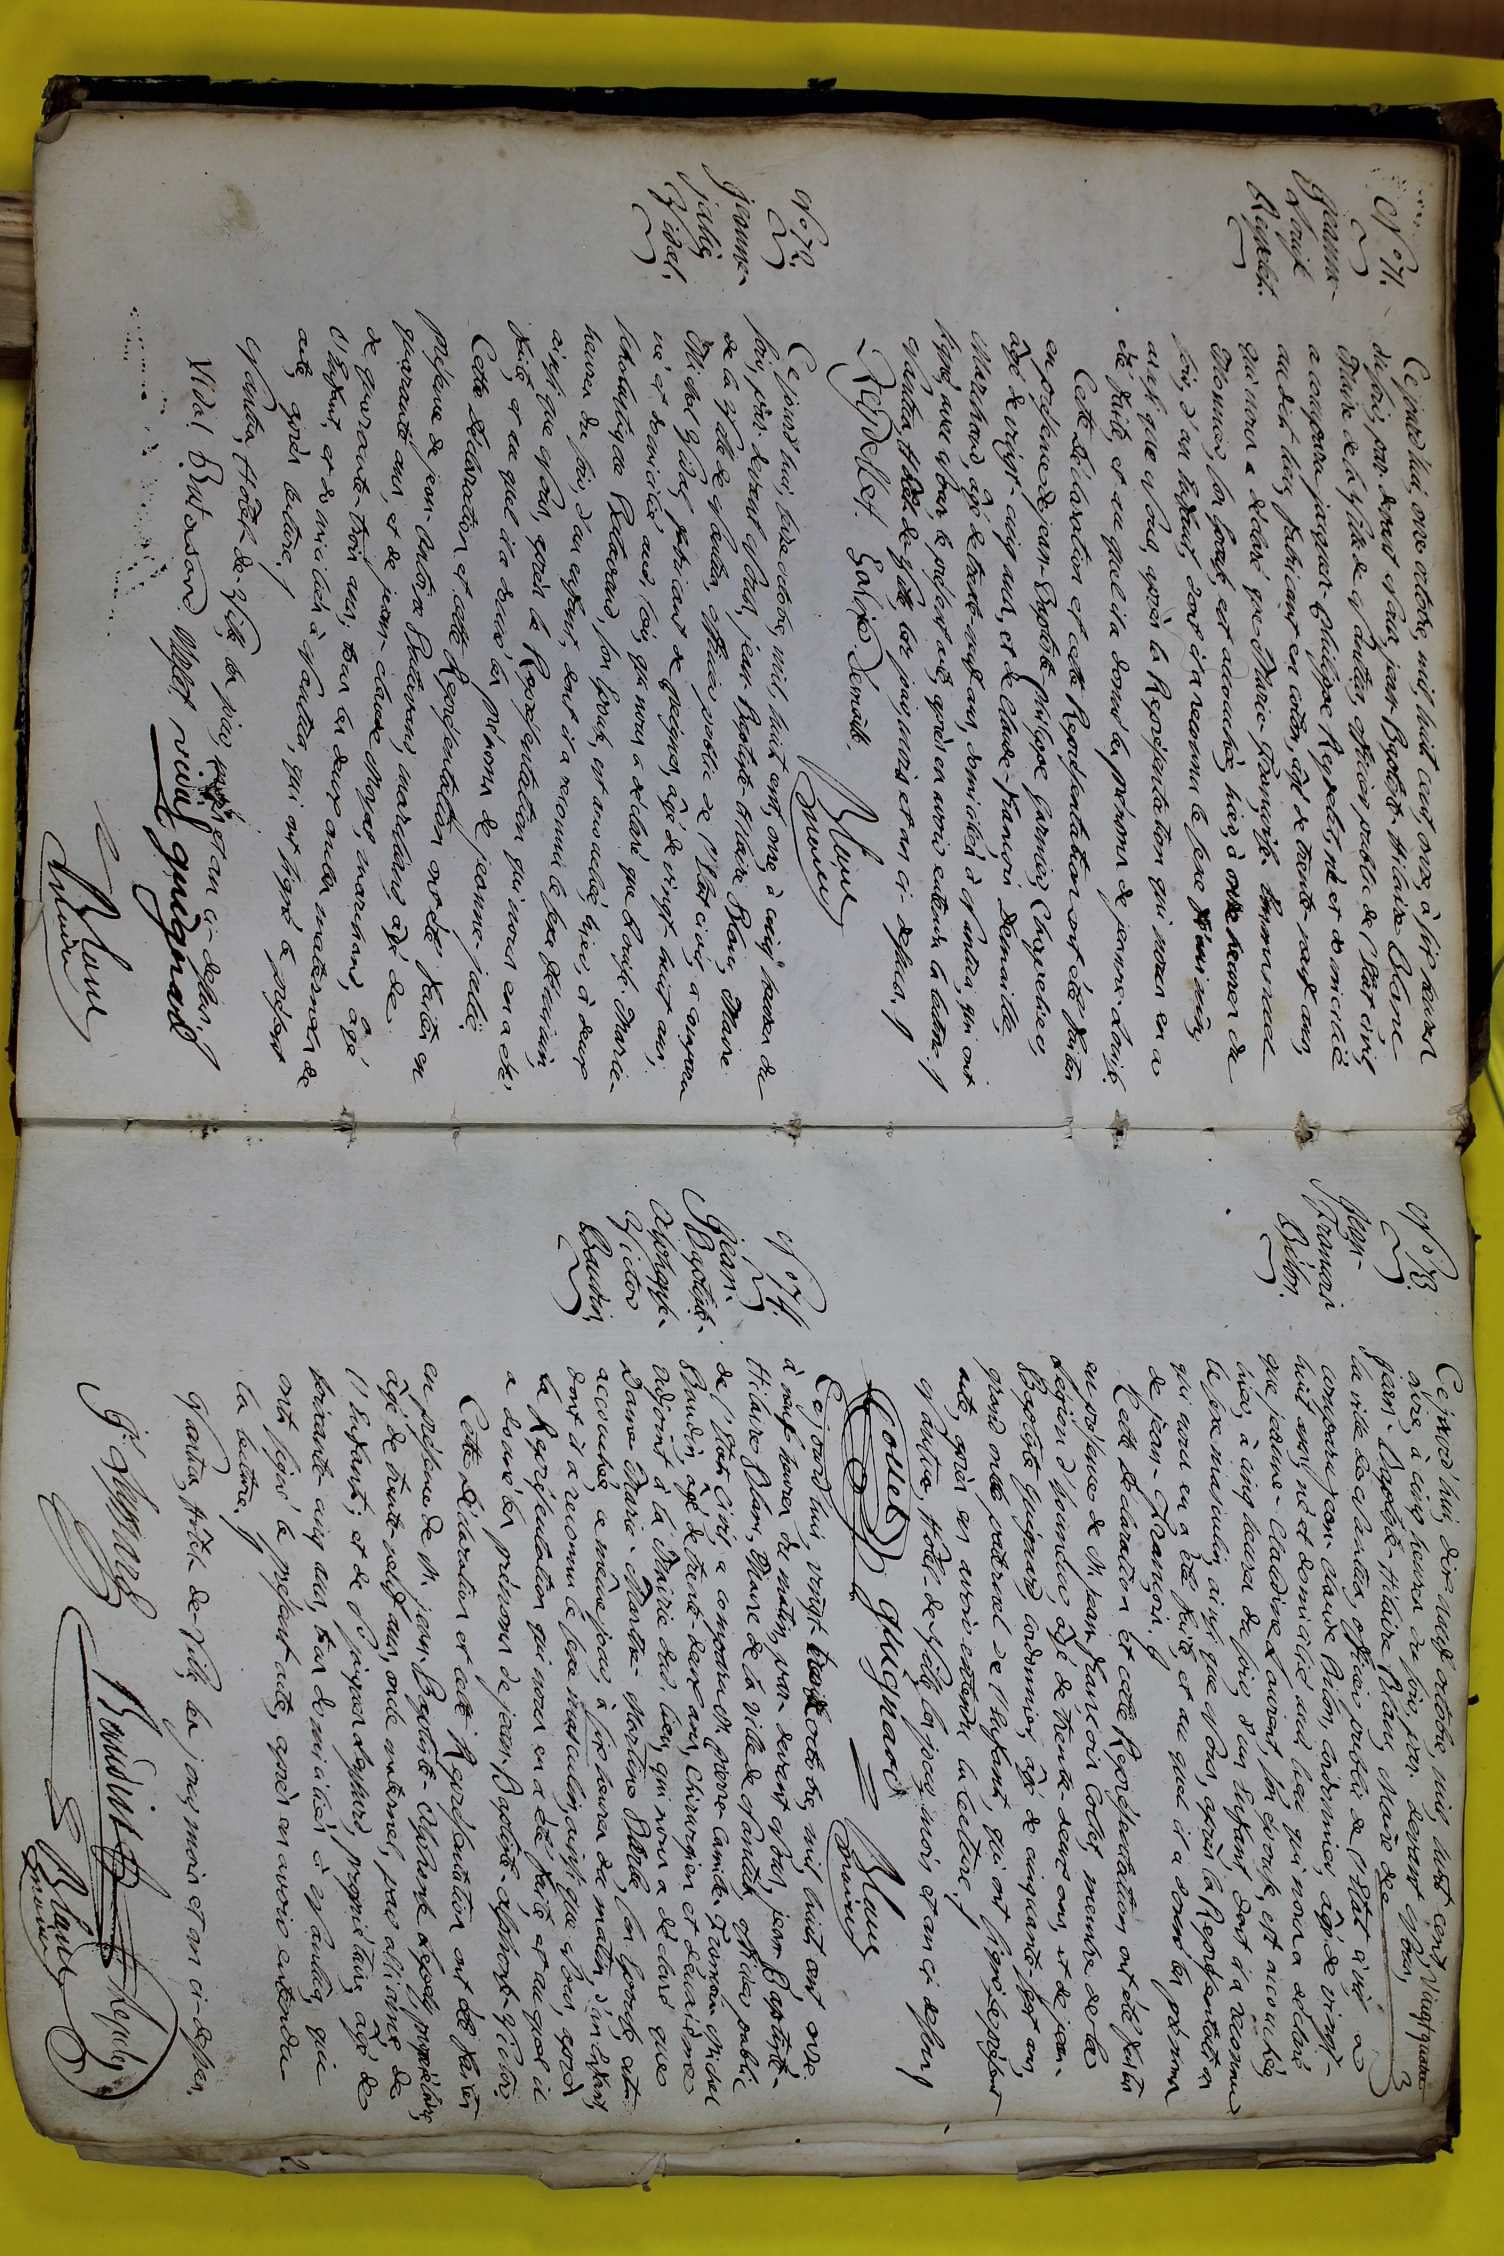 N.° 71.
Jeanne-
Louise
Reydelet.
Ce jourd'hui, onze octobre, mil huit cent onze, à six heures
du soir, par-devant Nous, jean-Baptiste-Hilaire Blanc,
Maire de la Ville de Nantua, officier public de l'état civil,
a comparu jacques-philippe Reydelet, né et domicilié
au dit lieu, fabricant en coton, âgé de trente-neuf ans,
qui nous a déclaré que Marie-Françoise
son épouse, est accouchée, hier, à onze heures du
soir, d'un Enfant, dont il a reconnu le sexe féminin,
ainsi que Nous, après la Représentation qui nous en a
été faite, et au quel il a donné les prénoms de jeanne-Louise.
Cette déclaration et cette Représentation ont été faites
en présence de jean-Baptiste-philippe Garnier, Chapelier,
âgé de vingt-cinq ans, et de Claude-François Demaille,
Marchand, âgé de trente-neuf ans, domiciliés à Nantua, qui ont
signé, avec Nous, le présent acte, après en avoir entendu la lecture.
Nantua, Hôtel-de-Ville, les jour, mois et an ci-dessus.
Reydellet
Blanc
maire
N.° 72.
Jeanne-
julie
Vidal.
Ce jourd'hui, treize octobre, mil huit cent onze, à cinq heures du
soir, par-devant Nous, jean-Baptiste-Hilaire Blanc, Maire
de la Ville de Nantua, officier public de l'état civil, a comparu
Michel Vidal, fabricant de peignes, âgé de vingt-huit ans,
né et domicilié aud. lieu, qui nous a déclaré que Louise-Marie-
Scholastique Brutasand, son épouse, est accouchée, hier, à deux
heures du soir, d'un enfant, dont il a reconnu le sexe féminin,
ainsi que Nous, après la Représentation qui nous en a été
faite, et au quel il a donné les prénoms de jeanne-julie.
Cette déclaration et cette Représentation ont été faites en
présence de jean-Antoine Brutasand, marchand, âgé de
quarante ans, et de jean-claude marchand, âgé
de quarante-trois ans, tous les deux oncles maternels de
l'Enfant, et domiciliés à Nantua, qui ont signé le présent
acte, après lecture.
Nantua, Hôtel-de-Ville, les jour, mois et an ci-dessus.
Vidal Brutasand guignard
Blanc
maire
Vingt quatre
N.° 73.
Jean-
François
Bilon.
Ce jourd'hui, dix-neuf octobre, mil huit cent
onze, à cinq heures du soir, par-devant Nous,
jean-Baptiste-Hilaire Blanc, Maire de
la ville de Nantua, officier public de l'état civil, a
comparu jean-claude Bilon, cordonnier, âgé de vingt-
huit ans, né et domicilié aud. lieu, qui nous a déclaré
que jeanne-claudine Laurent, son épouse, est accouchée,
hier, à cinq heures du soir, d'un Enfant, dont il a reconnu
le sexe masculin, ainsi que Nous, après la Représentation
qui nous en a été faite, et au quel il a donné les prénoms
de jean-François.
Cette déclaration et cette Représentation ont été faites
en présence de M. jean-François Collet, membre de la
Légion d'honneur, âgé de trente-deux ans, et de jean-
Baptiste Guignard, cordonnier, âgé de cinquante-sept ans,
grand oncle paternel de l'Enfant, qui ont signé le présent
acte, après en avoir entendu la lecture.
Nantua, Hôtel-de-Ville, les jour, mois et an ci-dessus.
Collet guignard
Blanc
maire
N.° 74.
Jean-
Baptiste-
Alphonse-
Victor
Baudin.
Ce jourd'hui, vingt-trois octobre, mil huit cent onze,
à neuf heures du matin, par-devant Nous, jean-Baptiste-
Hilaire Blanc, Maire de la Ville de Nantua, officier public
de l'état civil, a comparu M. pierre-camille-Romain-Michel
Baudin, âgé de trente-deux ans, Chirurgien et deuxième
adjoint à la Mairie dud. lieu, qui nous a déclaré que
Dame Marie-Marthe-Martine son épouse, est
accouchée, ce même jour, à six heures du matin, d'un Enfant,
dont il a reconnu le sexe masculin, ainsi que Nous, après
la Représentation qui nous en a été faite, et au quel il
a donné les prénoms de jean-Baptiste-alphonse-Victor.
Cette déclaration et cette Représentation ont été faites
en présence de M. jean-Baptiste- propriétaire,
âgé de trente-neuf ans, oncle maternel, par alliance, de
l'Enfant; et de M. jacques propriétaire, âgé de
soixante-cinq ans, tous domiciliés à Nantua, qui
ont signé le présent acte, après en avoir entendu
la lecture.
Nantua, Hôtel-de-Ville, les jour, mois et an ci-dessus.
Baudin
Blanc
maire